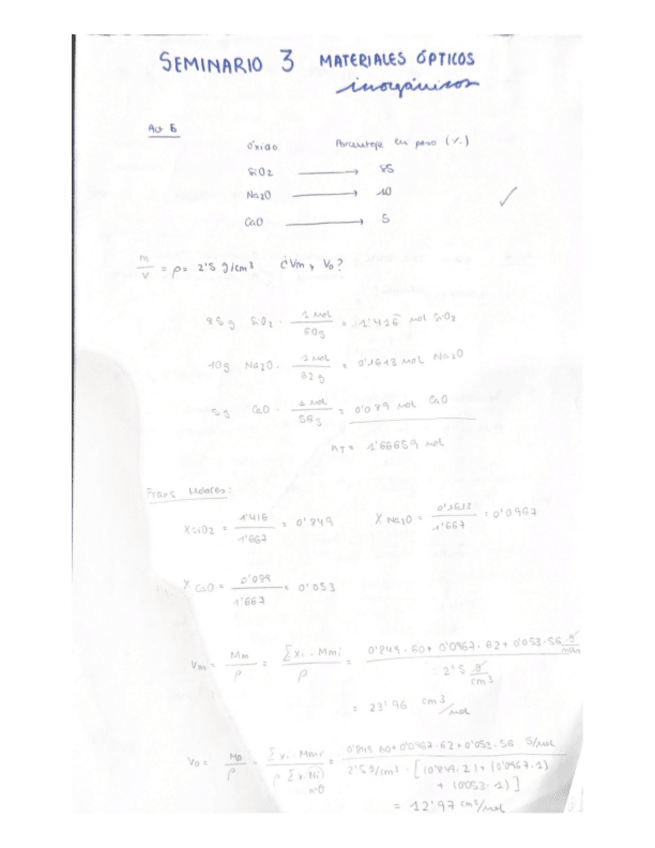 SEMINARIO 3 MATERIALES ÓPTICOS
inorgánicos
Act 5
Óxido Porcentaje en peso (%)
SiO2 → 85
Na2O → 10
CaO → 5
m/V = ρ = 2'5 g/cm³ ¿Vm, Vo?
85g SiO2 · 1 mol/60g = 1'416 mol SiO2
10g Na2O · 1 mol/62g = 0'1613 mol Na2O
5g CaO · 1 mol/56g = 0'089 mol CaO
nT = 1'66659 mol
Fracs Molares:
XSiO2 = 1'416/1'667 = 0'849 XNa2O = 0'1613/1'667 = 0'0967
XCaO = 0'089/1'667 = 0'053
Vm = Mm/ρ = Σxi·Mmi/ρ = 0'849·60+0'0967·62+0'053·56 g/mol / 2'5 g/cm³
= 23'96 cm³/mol
Vo = Mo/ρ = Σxi·Mmi/ρ Σxi·Ni = 0'849·60+0'0967·62+0'053·56 g/mol / 2'5 g/cm³·[(0'849·2)+(0'0967·1)
+(0053·1)]
= 12'97 cm³/mol